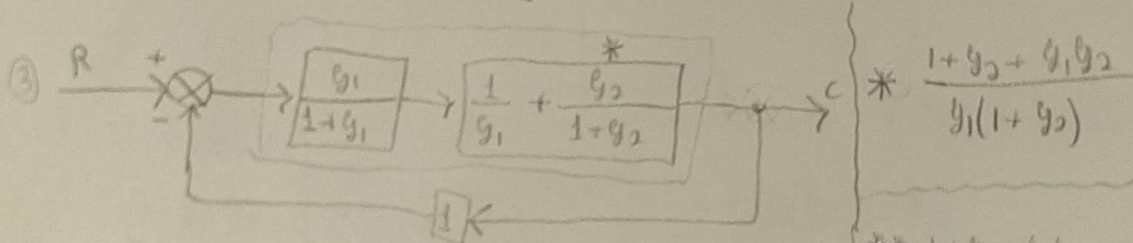 ③ R + − g₁/(1+g₁) 1/g₁ + g₂/(1+g₂) * C
1
* (1+g₂+g₁g₂)/(g₁(1+g₂))